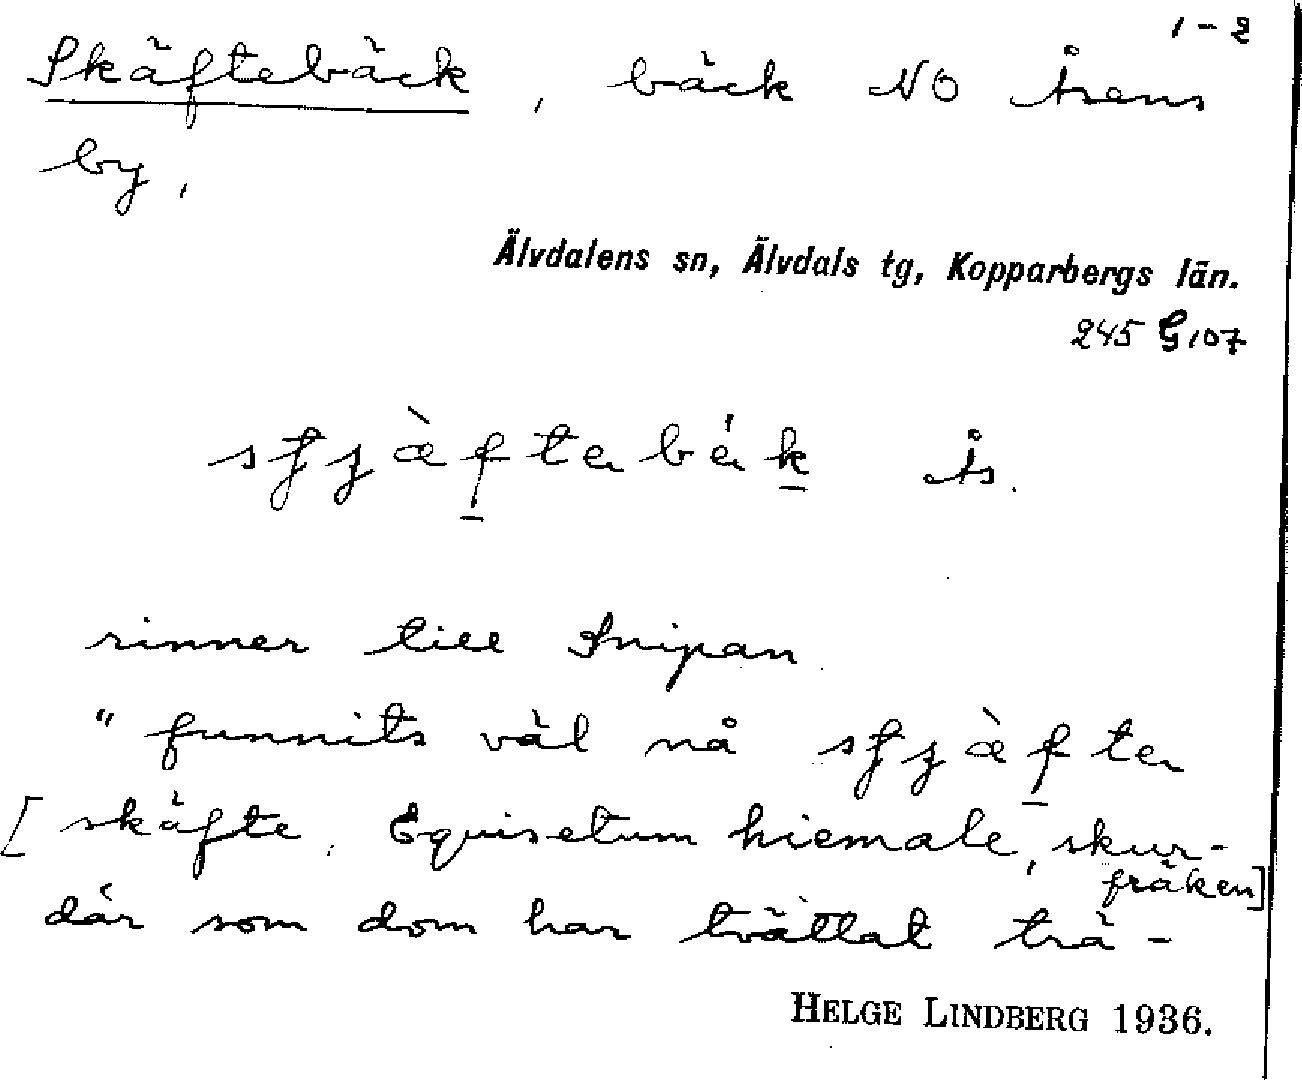 1-2
Skäftebäck, bäck NO Åsens
by,
Älvdalens sn, Älvdals tg, Kopparbergs län.
245 G107
Ås.
rinner till Snipan
"funnits väl nå
[skäfte, Equisetum hiemale, skur-
fräken]
där som dom har tvättat trä-
HELGE LINDBERG 1936.